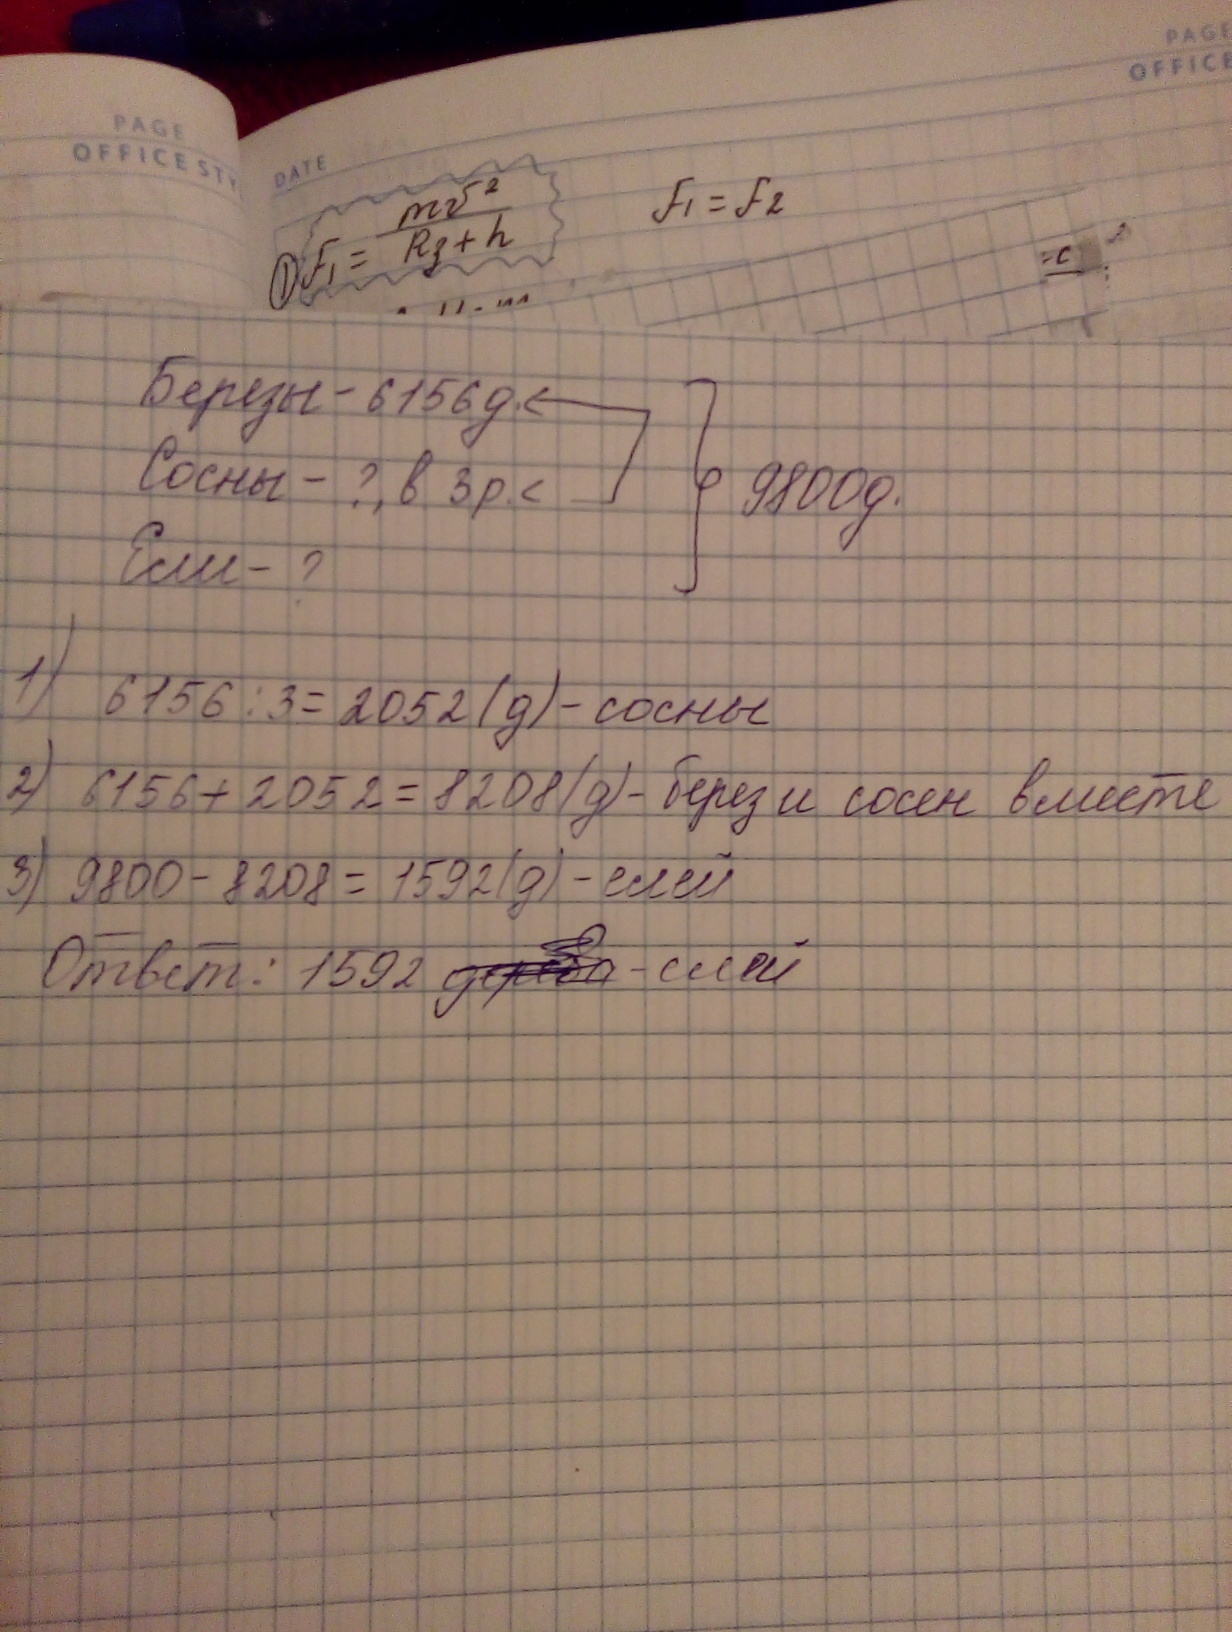 PAGE
OFFICE STY
DATE
PAGE
OFFICE
① F₁ = mv² / Rз + h
F₁ = F₂
= c
Березы - 6156д. <
Сосны - ?, в 3р. <
Ели - ?
9800д.
1) 6156 : 3 = 2052 (д) - сосны
2) 6156 + 2052 = 8208 (д) - берез и сосен вместе
3) 9800 - 8208 = 1592 (д) - елей
Ответ: 1592 - елей